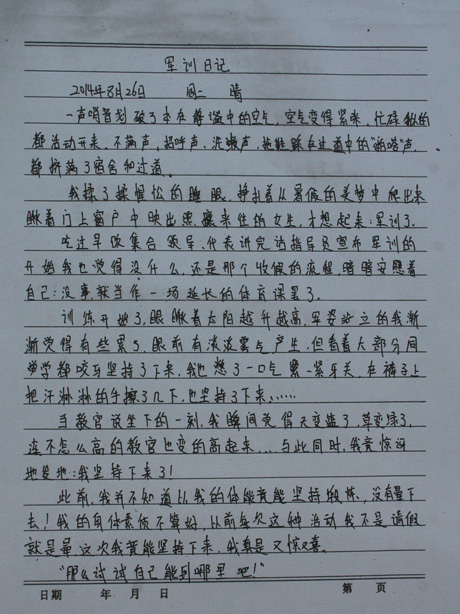 军训日记
2014年8月26日 周二 晴
一声哨音划破了本在静谧中的空气，空气变得紧张，忙碌似的
都活动开来，不满声，招呼声，洗漱声，拖鞋踩在过道中的“啪嗒”声，
都挤满了宿舍和过道。
我揉了揉惺忪的睡眼，挣扎着从暑假的美梦中爬出来
瞅着门上窗户中映出熙攘来往的女生，才想起来：军训了。
吃过早饭集合领导、代表讲完话指导员宣布军训的
开始我也觉得没什么，还是那个收假的流程，暗暗安慰着
自己：没事就当作一场延长的体育课罢了。
训练开始了，眼瞅着太阳越升越高，军姿站立的我渐
渐觉得有些累了，眼前有浓浓雾气产生，但看着大部分同
学都咬牙坚持了下来，我也憋了一口气，紧牙关，在裤子上
把汗淋淋的手擦了几下，也坚持了下来......
当教官说坐下的一刻，我瞬间觉得天变蓝了，草变绿了，
连不怎么高的教官也变的高起来...与此同时，我竟惊讶
地发地：我坚持下来了！
此前，我并不知道从我的体能竟能坚持锻炼，没有晕下
去！我的身体素质不算好，从前每次这种活动我不是请假
就是晕这次我竟能坚持下来，我真是又惊又喜。
“那么试试自己能到哪里吧！”
日期 年 月 日 第 页